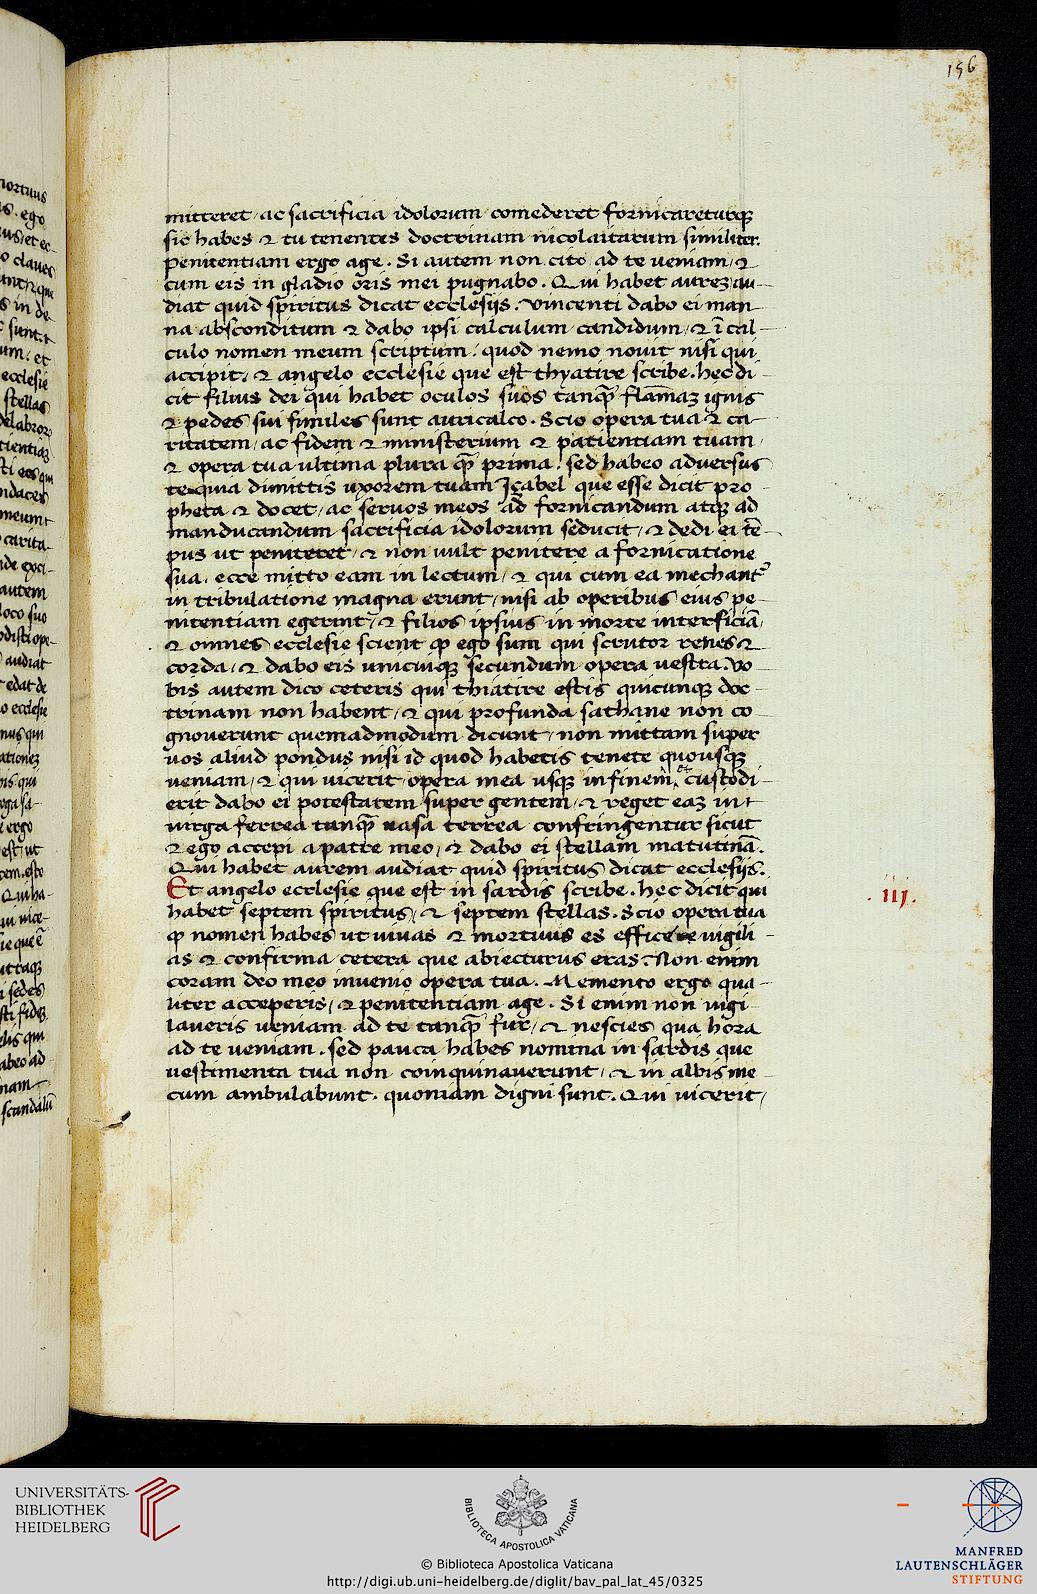 156
mitteret / ac sacrificia idolorum comederet fornicareturqꝫ
sic habes ⁊ tu tenentes doctrinam nicolaitarum similiter.
Penitentiam ergo age. Si autem non cito ad te veniam / ⁊
cum eis in gladio oris mei pugnabo. Qui habet aurez au-
diat quid spiritus dicat ecclesijs. vincenti dabo ei man-
na absconditum ⁊ dabo ipsi calculum candidum / ⁊ ī cal-
culo nomen meum scriptum. quod nemo novit nisi qui
accipit. ⁊ angelo ecclesie que est thyatire scribe. hec di-
cit filius dei qui habet oculos suos tanqꝫ flam̄az ignis
⁊ pedes sui similes sunt auricalco. Scio opera tua ⁊ ca-
ritatem / ac fidem ⁊ ministerium ⁊ patientiam tuam /
⁊ opera tua ultima plura qꝫ prima. sed habeo adversus
te quia dimittis uxorem tuam Jezabel que esse dicit pro-
pheta ⁊ docet / ac servos meos ad fornicandum atqꝫ ad
manducandum sacrificia idolorum seducit / ⁊ dedi ei tē-
pus ut peniteret / ⁊ non vult penitere a fornicatione
sua. ecce mitto eam in lectum / ⁊ qui cum ea mechantᷣ
in tribulatione magna erunt / nisi ab operibus eius pe-
nitentiam egerint / ⁊ filios ipsius in morte interficiā /
⁊ omnes ecclesie scient ꝙ ego sum qui scrutor renes ⁊
corda / ⁊ dabo eis unicuiqꝫ secundum opera vestra. Vo-
bis autem dico ceteris qui thiatire estis quicunqꝫ doc-
trinam non habent / ⁊ qui profunda sathane non co-
gnoverunt quemadmodum dicunt / non mittam super
vos aliud pondus nisi id quod habetis tenete quousqꝫ
veniam / ⁊ qui vicerit opera mea usqꝫ in finem custodi-
erit dabo ei potestatem super gentem / ⁊ reget eaz in
virga ferrea tanqꝫ vasa terrea confringentur sicut
⁊ ego accepi a patre meo / ⁊ dabo ei stellam matutinā.
Qui habet aurem audiat quid spiritus dicat ecclesijs.
Et angelo ecclesie que est in sardis scribe. hec dicit qui
.iij.
habet septem spiritus / ⁊ septem stellas. Scio opera tua
ꝙ nomen habes ut vivas ⁊ mortuus es efficere vigili-
as ⁊ confirma cetera que abiecturus eras. Non enim
coram deo meo invenio opera tua. Memento ergo qua-
liter acceperis / ⁊ penitentiam age. Si enim non vigi-
laveris veniam ad te tanqꝫ fur / ⁊ nescies qua hora
ad te veniam. sed pauca habes nomina in sardis que
vestimenta tua non coinquinaverunt / ⁊ in albis me-
cum ambulabunt. quoniam digni sunt. Qui vicerit /
UNIVERSITÄTS-
BIBLIOTHEK
HEIDELBERG
BIBLIOTECA APOSTOLICA VATICANA
© Biblioteca Apostolica Vaticana
http://digi.ub.uni-heidelberg.de/diglit/bav_pal_lat_45/0325
MANFRED
LAUTENSCHLÄGER
STIFTUNG